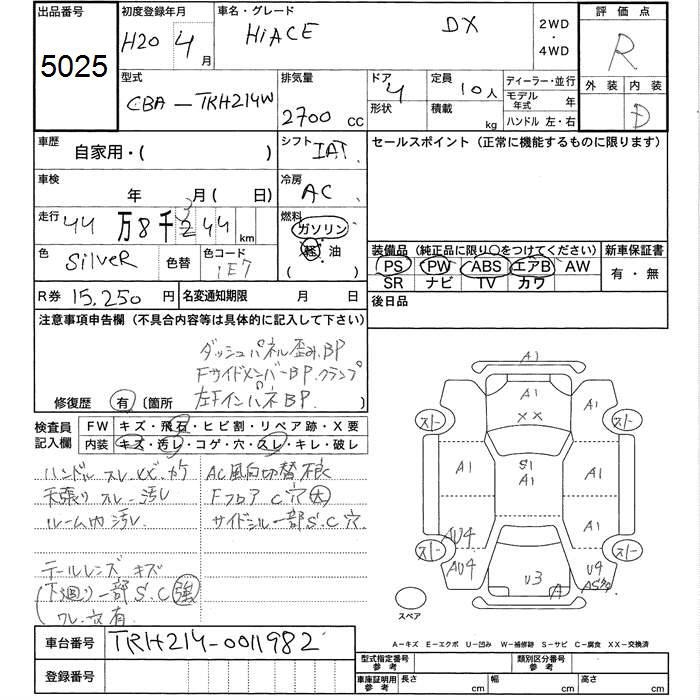 出品番号 初度登録年月 車名・グレード 評価点
5025 H20 4月 HiACE DX 2WD・4WD R
型式 排気量 ドア 4 定員 10人 ディーラー・並行 外装 内装
CBA-TRH214W 2700 cc 形状 積載 kg モデル年式 年 D
ハンドル 左・右
車歴 自家用・( ) シフト IAT セールスポイント(正常に機能するものに限ります)
車検 年 月( 日) 冷房 AC
走行 44万8千244km 燃料 ガソリン
軽油
( )
色 SilveR 色替 色コード 1E7
装備品(純正品に限り○をつけてください) 新車保証書
PS PW ABS エアB AW 有・無
SR ナビ TV カワ
R券 15,250円 名変通知期限 月 日 後日品
注意事項申告欄(不具合内容等は具体的に記入して下さい)
ダッシュパネル歪み.BP
FサイドメンバーBP.クランプ
修復歴 有 〔箇所 左FインパネBP. 〕
検査員記入欄 FW キズ・飛石・ヒビ割・リペア跡・X要
内装 キズ・汚レ・コゲ・穴・スレ・キレ・破レ
ハンドル スレ AC風向切替
天張り スレ 汚レ Fフロア C穴(大)
ルーム内 汚レ. サイドシル一部S.C穴.
テールレンズ キズ
(下廻り)一部S.C(強)
有.
A1
A1
XX
A1
スト スト
A1
S1
A1
A1
A1
AU4
スト スト
AU4
U3
A
U4
スペア
車台番号 TRH214-0011982
登録番号
A-キズ E-エクボ U-凹み W-補修跡 S-サビ C-腐食 XX-交換済
型式指定番号参考 類別区分番号参考
車庫証明用参考 長さ cm 幅 cm 高さ cm